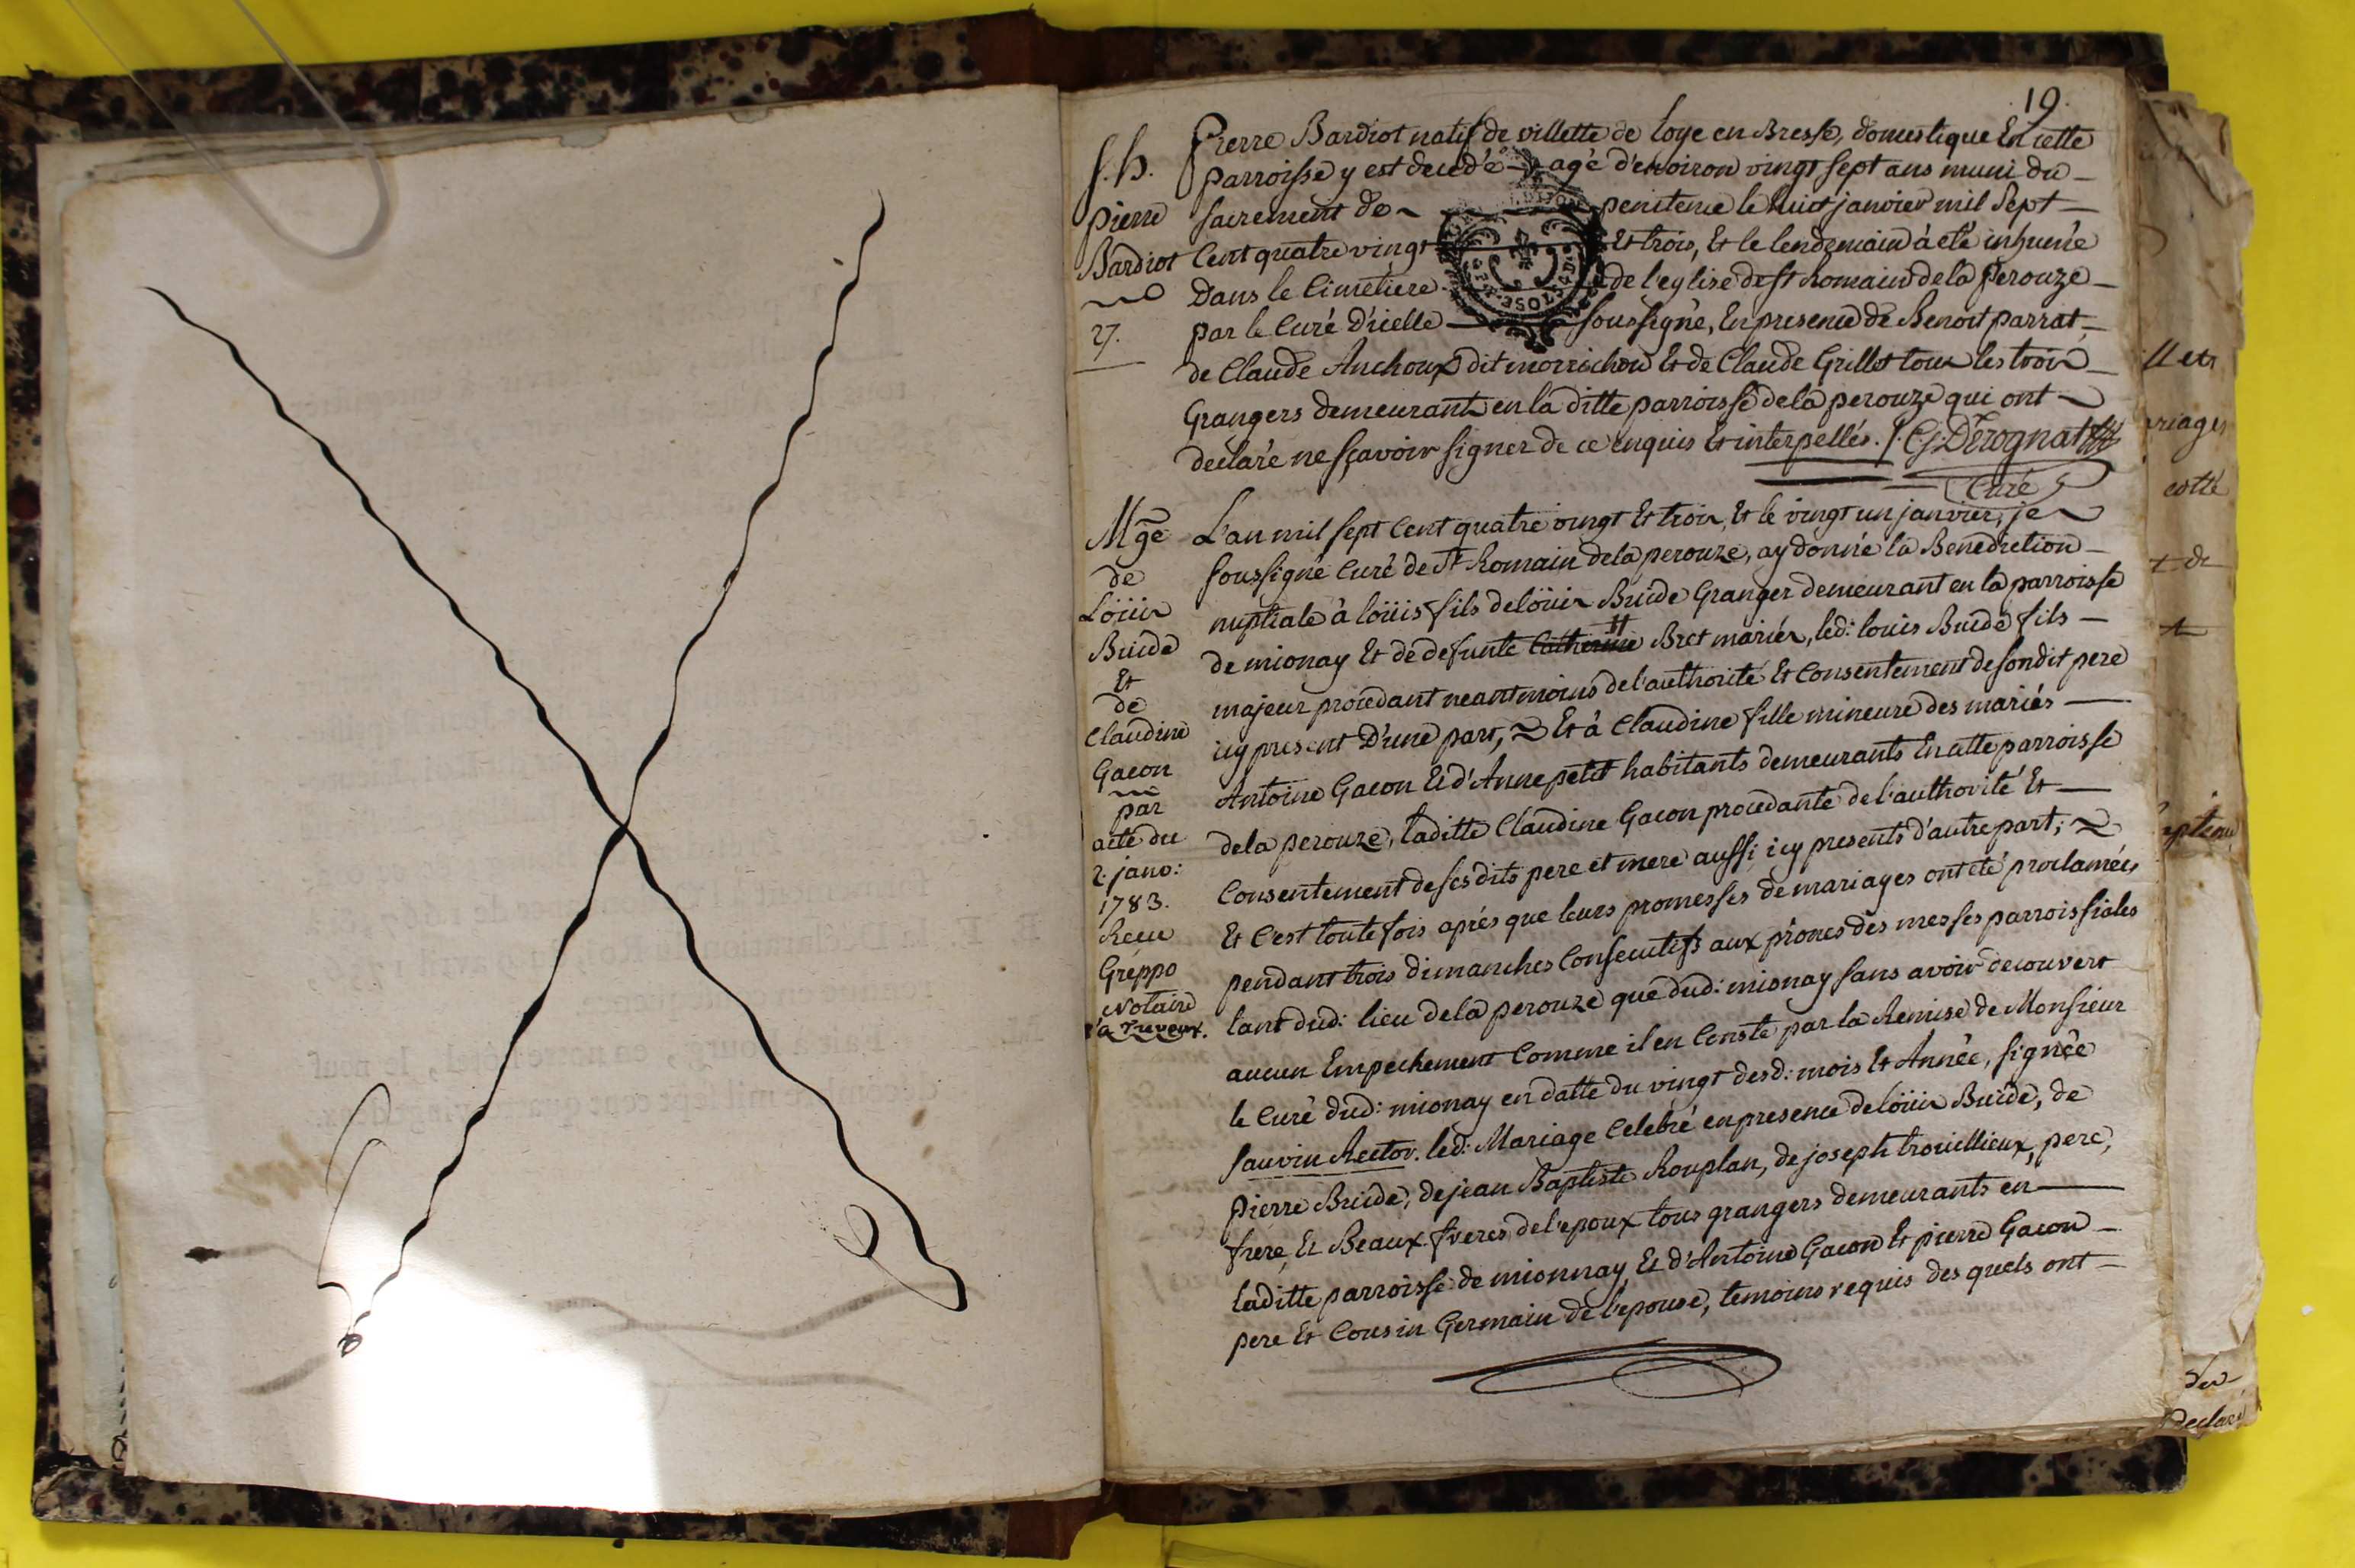 19.
S. h.
Pierre
Bardiot
27.
Pierre Bardiot natif de villette de loye en Bresse, domestique En cette
parroisse y est decedé agé d'environ vingt sept ans muni du
sacrement de penitence le huit janvier mil Sept
Cent quatre vingt Et trois, Et le lendemain à eté inhumé
Dans le Cimetiere de l'eglise de st Romain de la perouze
par le Curé D'icelle soussigné, En presence de Benoit parrat
de Claude Anchoux dit morrichon Et de Claude Grillet tous les trois
Grangers demeurants en la ditte parroisse de la perouze qui ont
declaré ne sçavoir signer de ce enquis Et interpellés. C. J. Derognat
Curé
Mge
de
Loüis
Buide
Et
de
Claudine
Gacon
par
acte du
2. janv:
1783.
Recu
Greppo
Notaire
a Trevoux.
L'an mil sept Cent quatre vingt Et trois, Et le vingt un janvier, je
soussigné Curé de St Romain de la perouze, ay donné la Benediction
nuptiale à loüis fils de loüis Buide Granger demeurant en la parroisse
de mionay Et de defunte Catherine Bret mariés, led: louis Buide fils
majeur procedant neantmoins de l'authorité Et Consentement de son dit pere
icy present D'une part, Et à Claudine fille mineure des mariés
Antoine Gacon Et d'Anne petit habitants demeurants En cette parroisse
de la perouze, laditte Claudine Gacon procedante de l'authorité Et
Consentement de ses dits pere et mere aussi icy presents d'autre part;
Et C'est toute fois après que leurs promesses de mariages ont eté proclamées
pendant trois dimanches Consecutifs aux prônes des messes parroissiales
tant dud: lieu de la perouze que dud: mionay sans avoir decouvert
aucun Empechement Comme il en Conste par la Remise de Monsieur
le Curé dud: mionay en datte du vingt desd: mois Et Année, signée
Sauvin Rector. led: Mariage Celebré en presence de loüis Buide, de
pierre Buide, de jean Baptiste Rouplan, de joseph trouillieux, pere,
frere, Et Beaux-freres de l'epoux tous grangers demeurants en
laditte parroisse de mionnay, Et d'Antoine Gacon Et pierre Gacon
pere Et Cousin Germain de l'epouse, temoins requis des quels ont